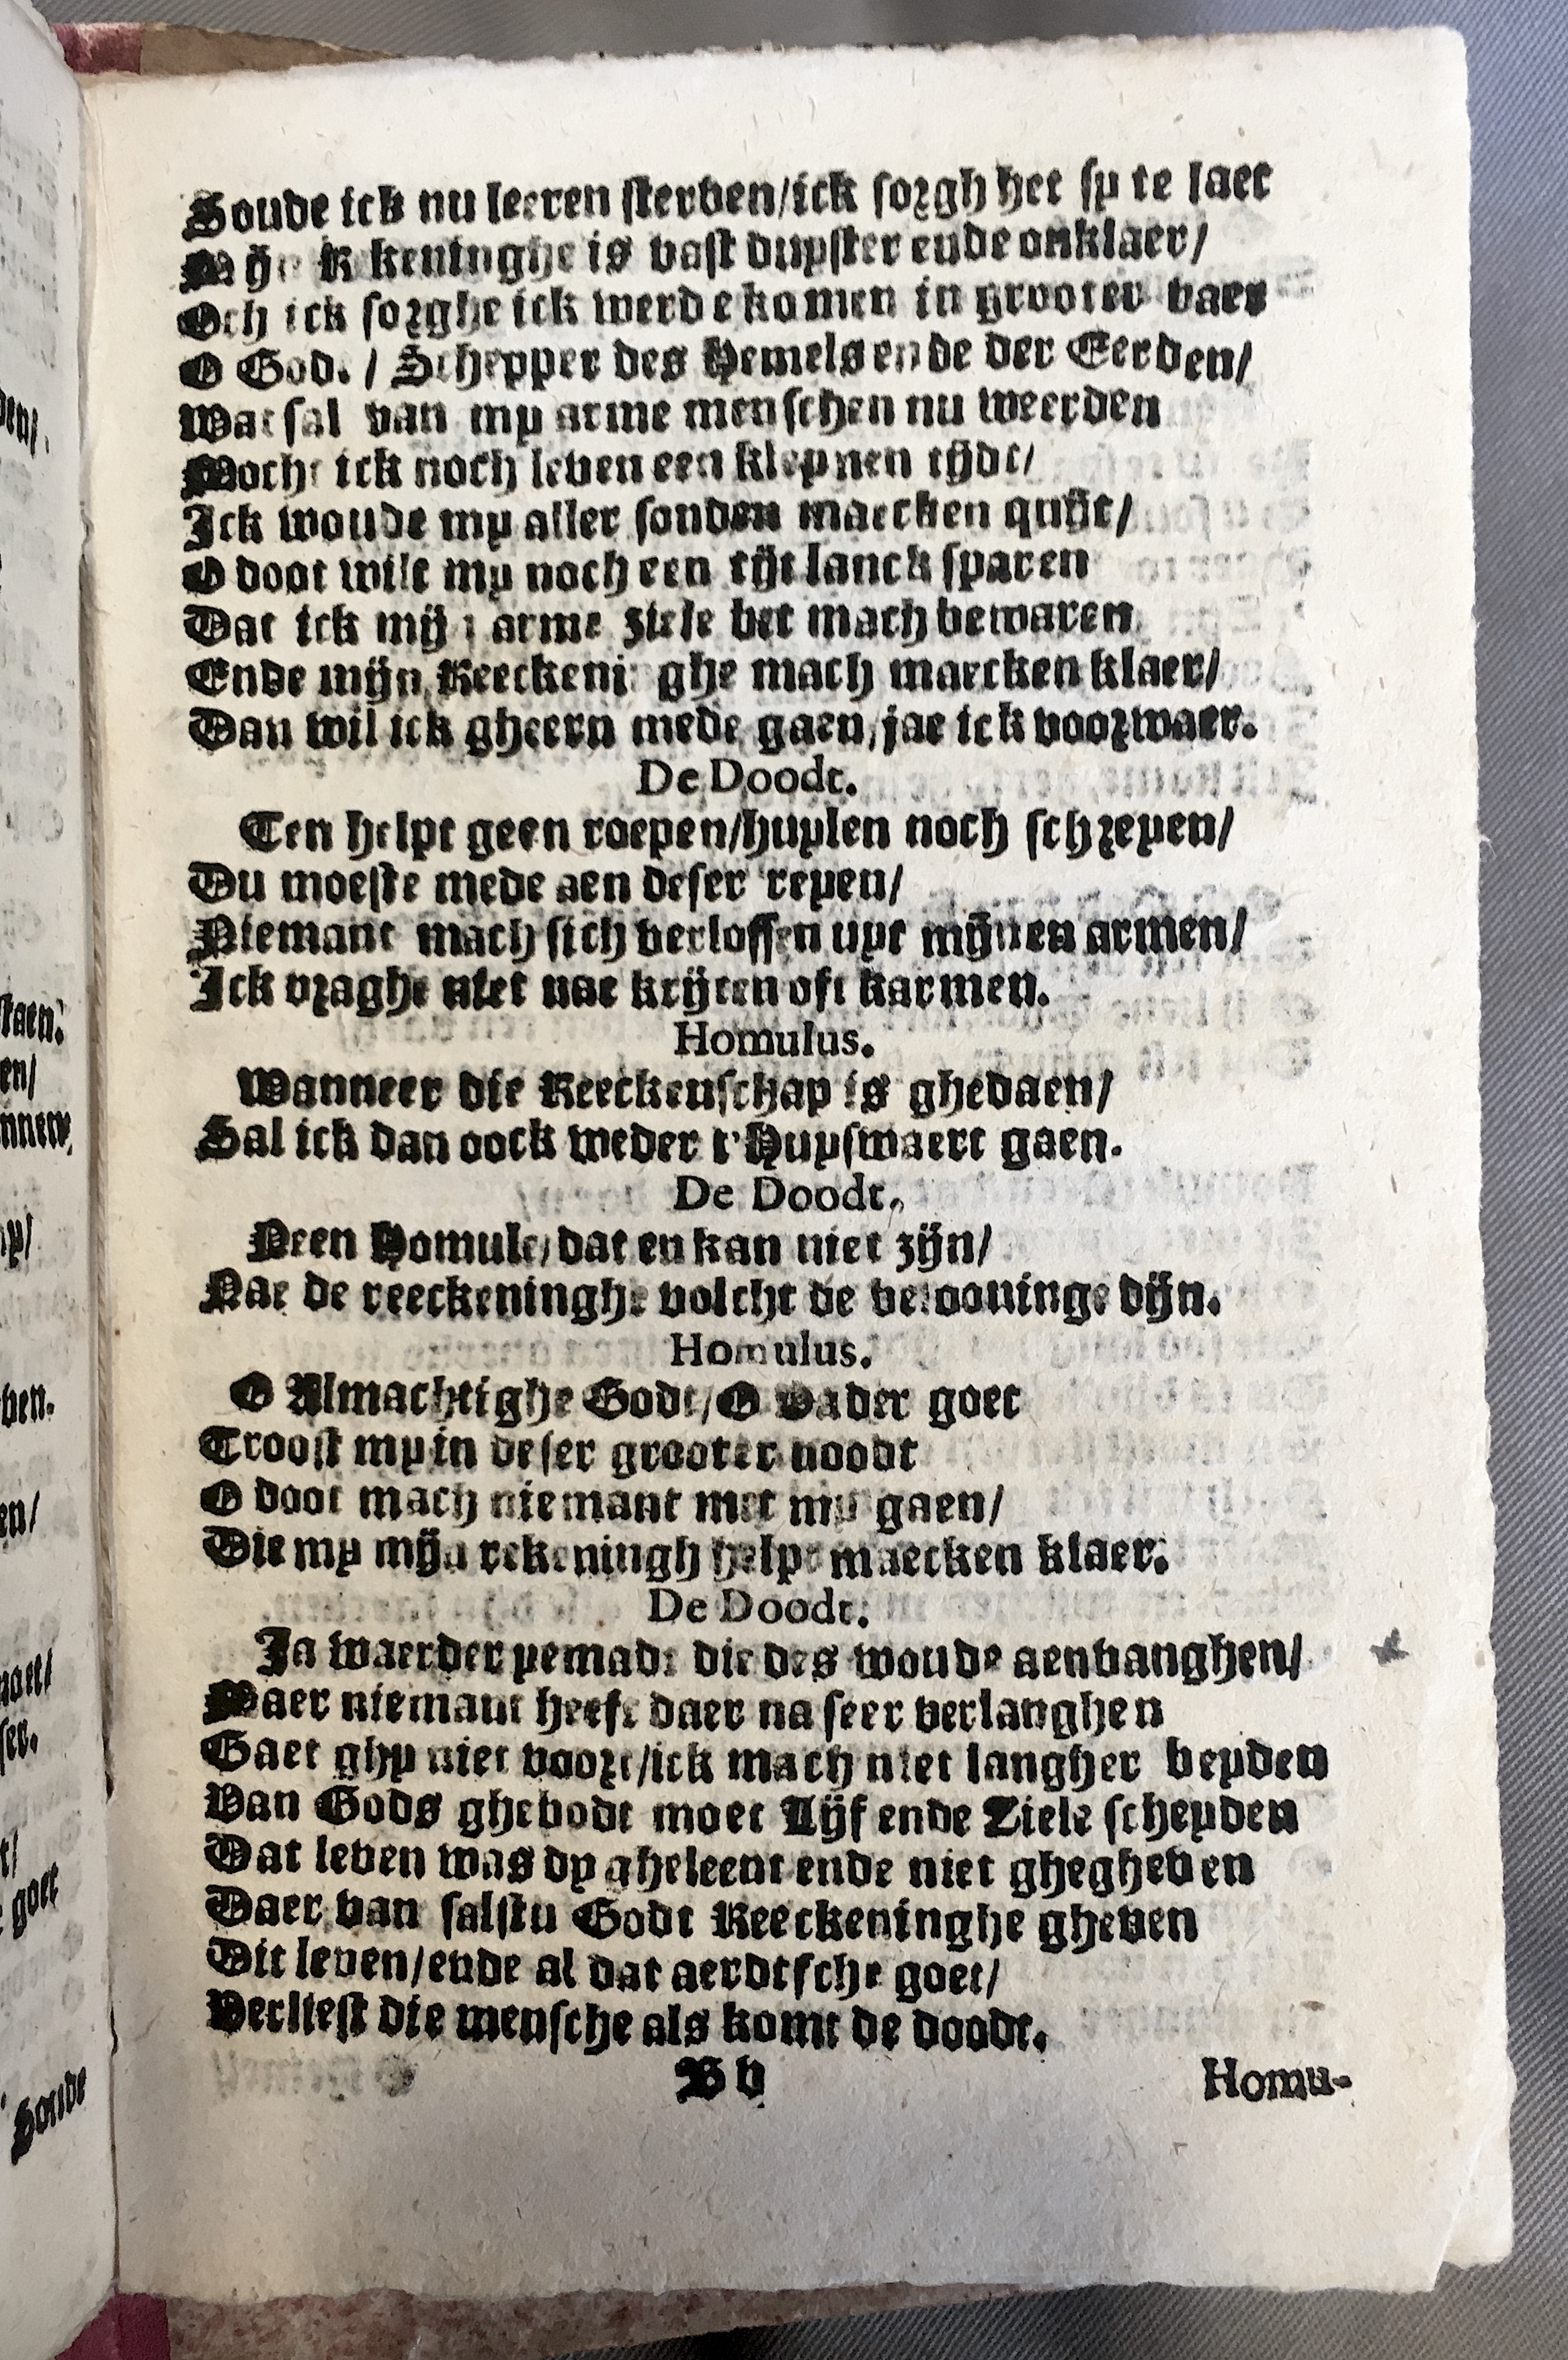 Soude ick nu leeren sterven/ick sorgh het sy te laet
Mijn Rekeninghe is vast duyster ende onklaer/
Och ick sorghe ick werde komen in grooter vaer
O Godt / Schepper des Hemels ende der Eerden/
Wat sal van my arme menschen nu weerden
Mocht ick noch leven een kleynen tijdt/
Ick woude my aller sonden maecken quijt/
O doot wilt my noch een tijt lanck sparen
Dat ick mijn arme ziele bet mach bewaren
Ende mijn Reeckeninghe mach maecken klaer/
Dan wil ick gheern mede gaen, jae ick voorwaer.
De Doodt.
Ten helpt geen roepen/huylen noch schreyen/
Du moeste mede aen deser reyen/
Niemant mach sich verlossen uyt mijnen armen/
Ick vraghe niet nae krijten oft karmen.
Homulus.
Wanneer die Reeckenschap is ghedaen/
Sal ick dan oock weder t'Huyswaert gaen.
De Doodt.
Neen Homule, dat en kan niet zijn/
Nae de reeckeninghe volcht de belooninge dijn.
Homulus.
O Almachtighe Godt/O Vader goet
Troost my in deser grooter noodt
O doot mach niemant met my gaen/
Die my mijn rekeningh helpe maecken klaer.
De Doodt.
Ja waerder yemadt die des woude aenvanghen/
Maer niemant heeft daer na seer verlanghen
Gaet ghy niet voort/ick mach niet langher beyden
Van Gods ghebodt moet Lijf ende Ziele scheyden
Dat leven was dy gheleent ende niet ghegheven
Daer van salstu Godt Reeckeninghe gheven
Dit leven/ende al dat aerdtsche goet/
Verliest die mensche als komt de doodt.
B v
Homu-